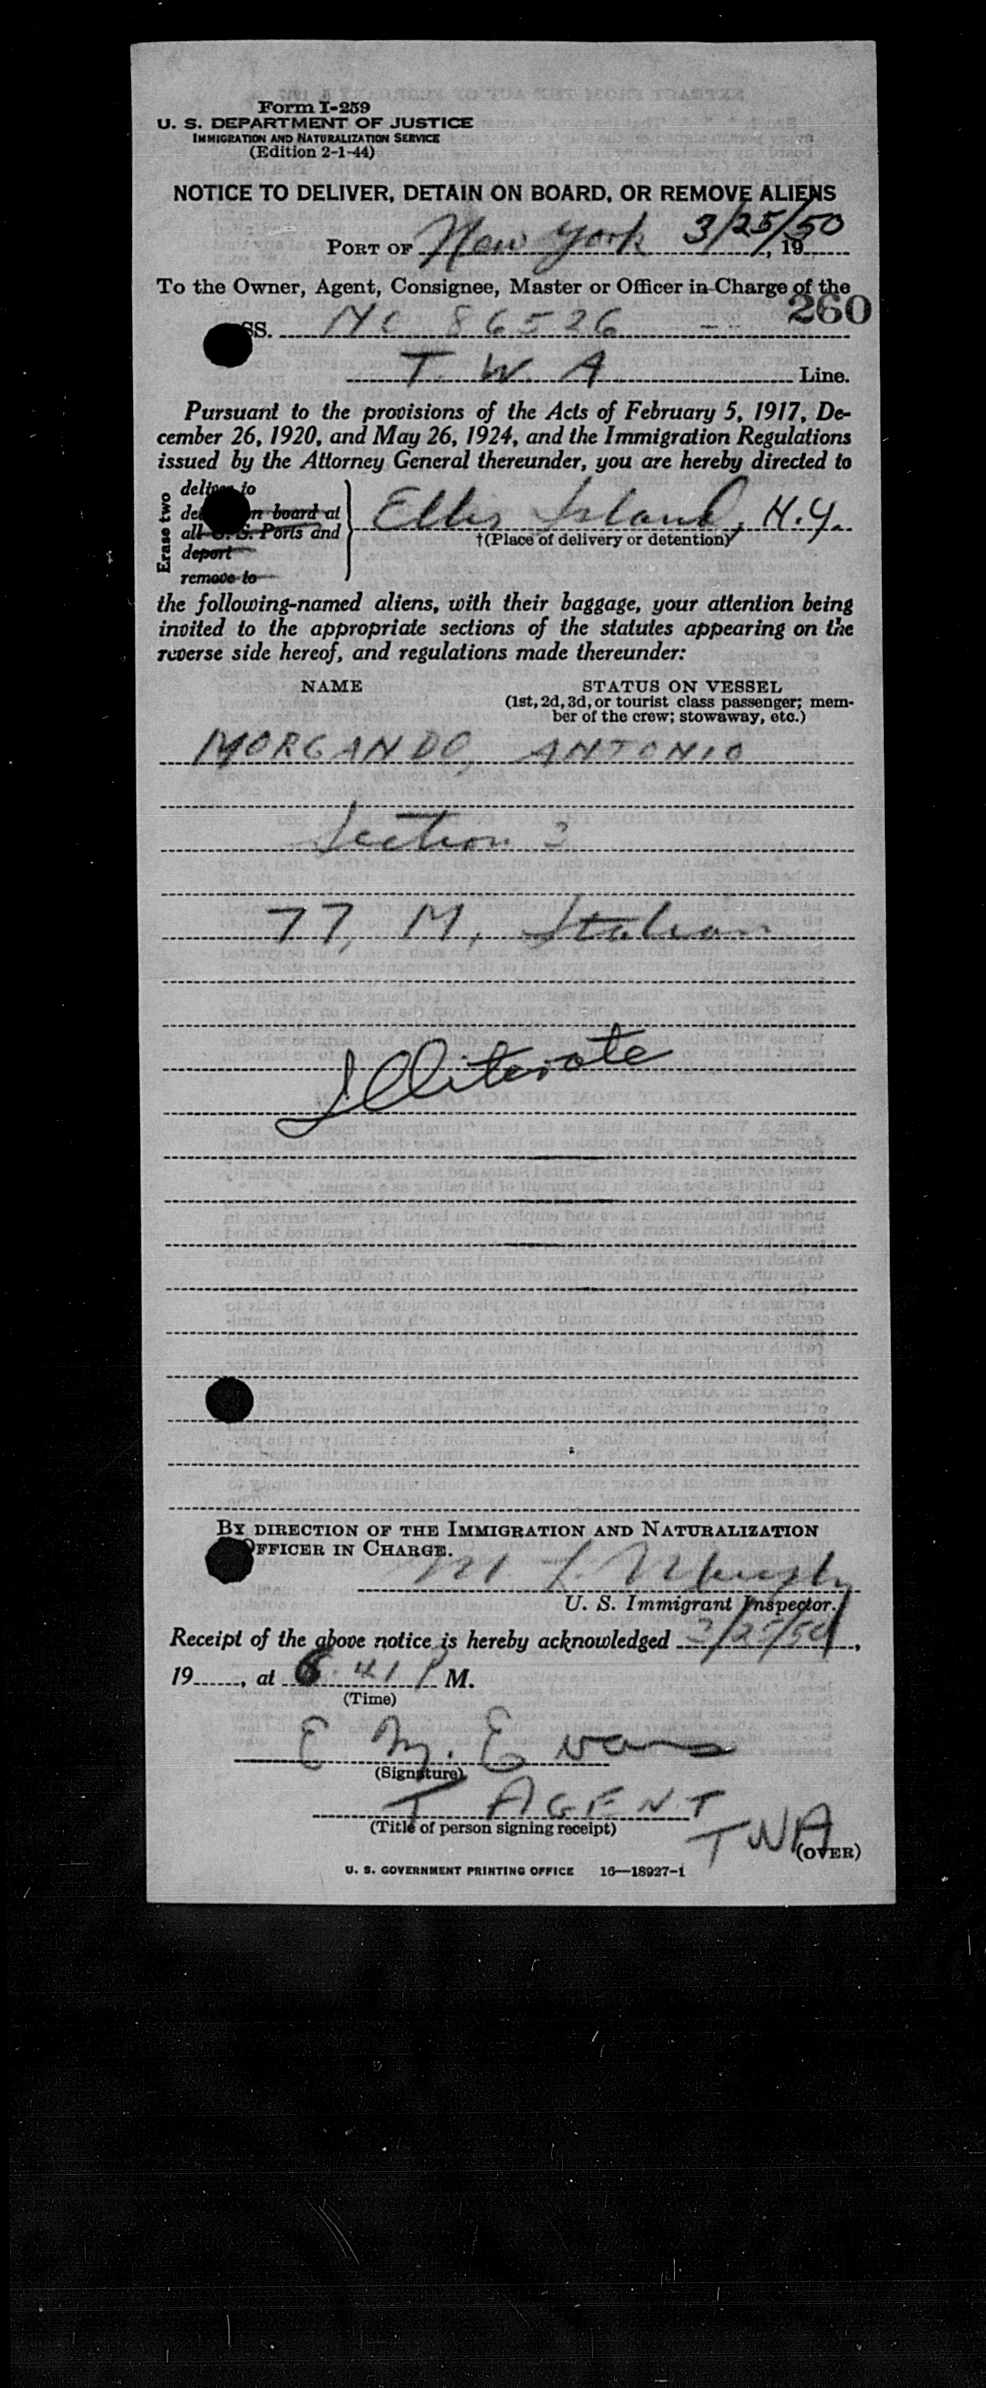 Form I-259
U. S. DEPARTMENT OF JUSTICE
IMMIGRATION AND NATURALIZATION SERVICE
(Edition 2-1-44)
NOTICE TO DELIVER, DETAIN ON BOARD, OR REMOVE ALIENS
PORT OF New York 3/25/50, 19
To the Owner, Agent, Consignee, Master or Officer in Charge of the
260
SS. NC 86526
T. W. A. Line.
Pursuant to the provisions of the Acts of February 5, 1917, De-
cember 26, 1920, and May 26, 1924, and the Immigration Regulations
issued by the Attorney General thereunder, you are hereby directed to
Erase two
deliver to
board at
all U. S. Ports and
deport
remove to
Ellis Island, N.Y.
†(Place of delivery or detention)
the following-named aliens, with their baggage, your attention being
invited to the appropriate sections of the statutes appearing on the
reverse side hereof, and regulations made thereunder:
NAME STATUS ON VESSEL
(1st, 2d, 3d, or tourist class passenger; mem-
ber of the crew; stowaway, etc.)
MORGANDO, ANTONIO
Section 3
77, M, Italian
Illiterate
BY DIRECTION OF THE IMMIGRATION AND NATURALIZATION
OFFICER IN CHARGE.
U. S. Immigrant Inspector.
Receipt of the above notice is hereby acknowledged 3/25/50,
19, at 6:41 P M.
(Time)
E M. Evans
(Signature)
T AGENT
(Title of person signing receipt)
TWA
(OVER)
U. S. GOVERNMENT PRINTING OFFICE 16—18927-1